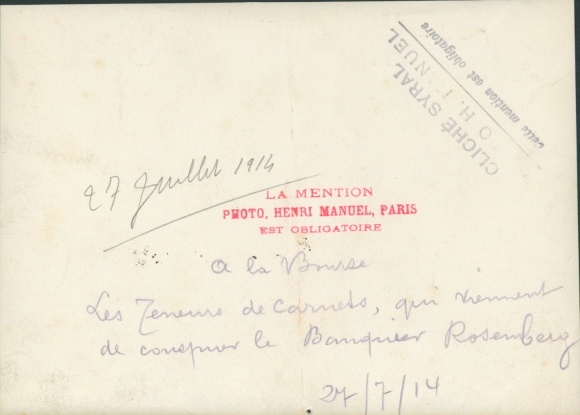 Cette mention est obligatoire
CLICHÉ SYRAL
O H. MANUEL
27 Juillet 1914
LA MENTION
PHOTO, HENRI MANUEL, PARIS
EST OBLIGATOIRE
A la Bourse
Les Teneurs de carnets, qui viennent
de conspuer le Banquier Rosemberg
27/7/14